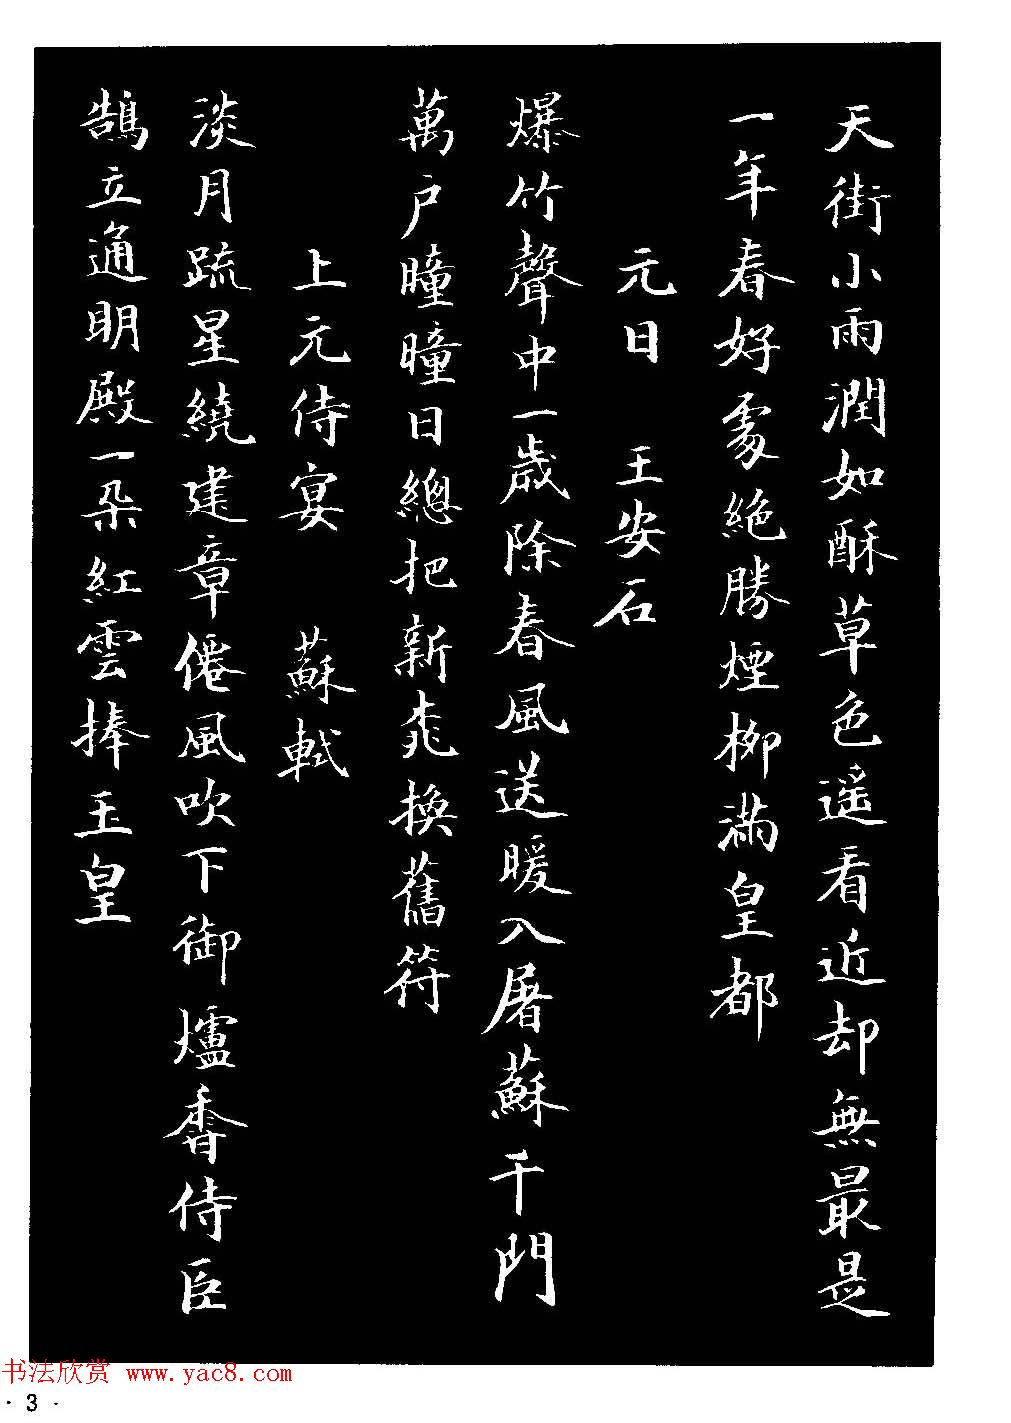 天街小雨潤如酥草色遥看近却無最是
一年春好處絶勝煙柳滿皇都
元日 王安石
爆竹聲中一歲除春風送暖入屠蘇千門
萬户曈曈日總把新桃換舊符
上元侍宴 蘇軾
淡月疏星繞建章僊風吹下御爐香侍臣
鵠立通明殿一朵紅雲捧玉皇
书法欣赏 www.yac8.com
· 3 ·